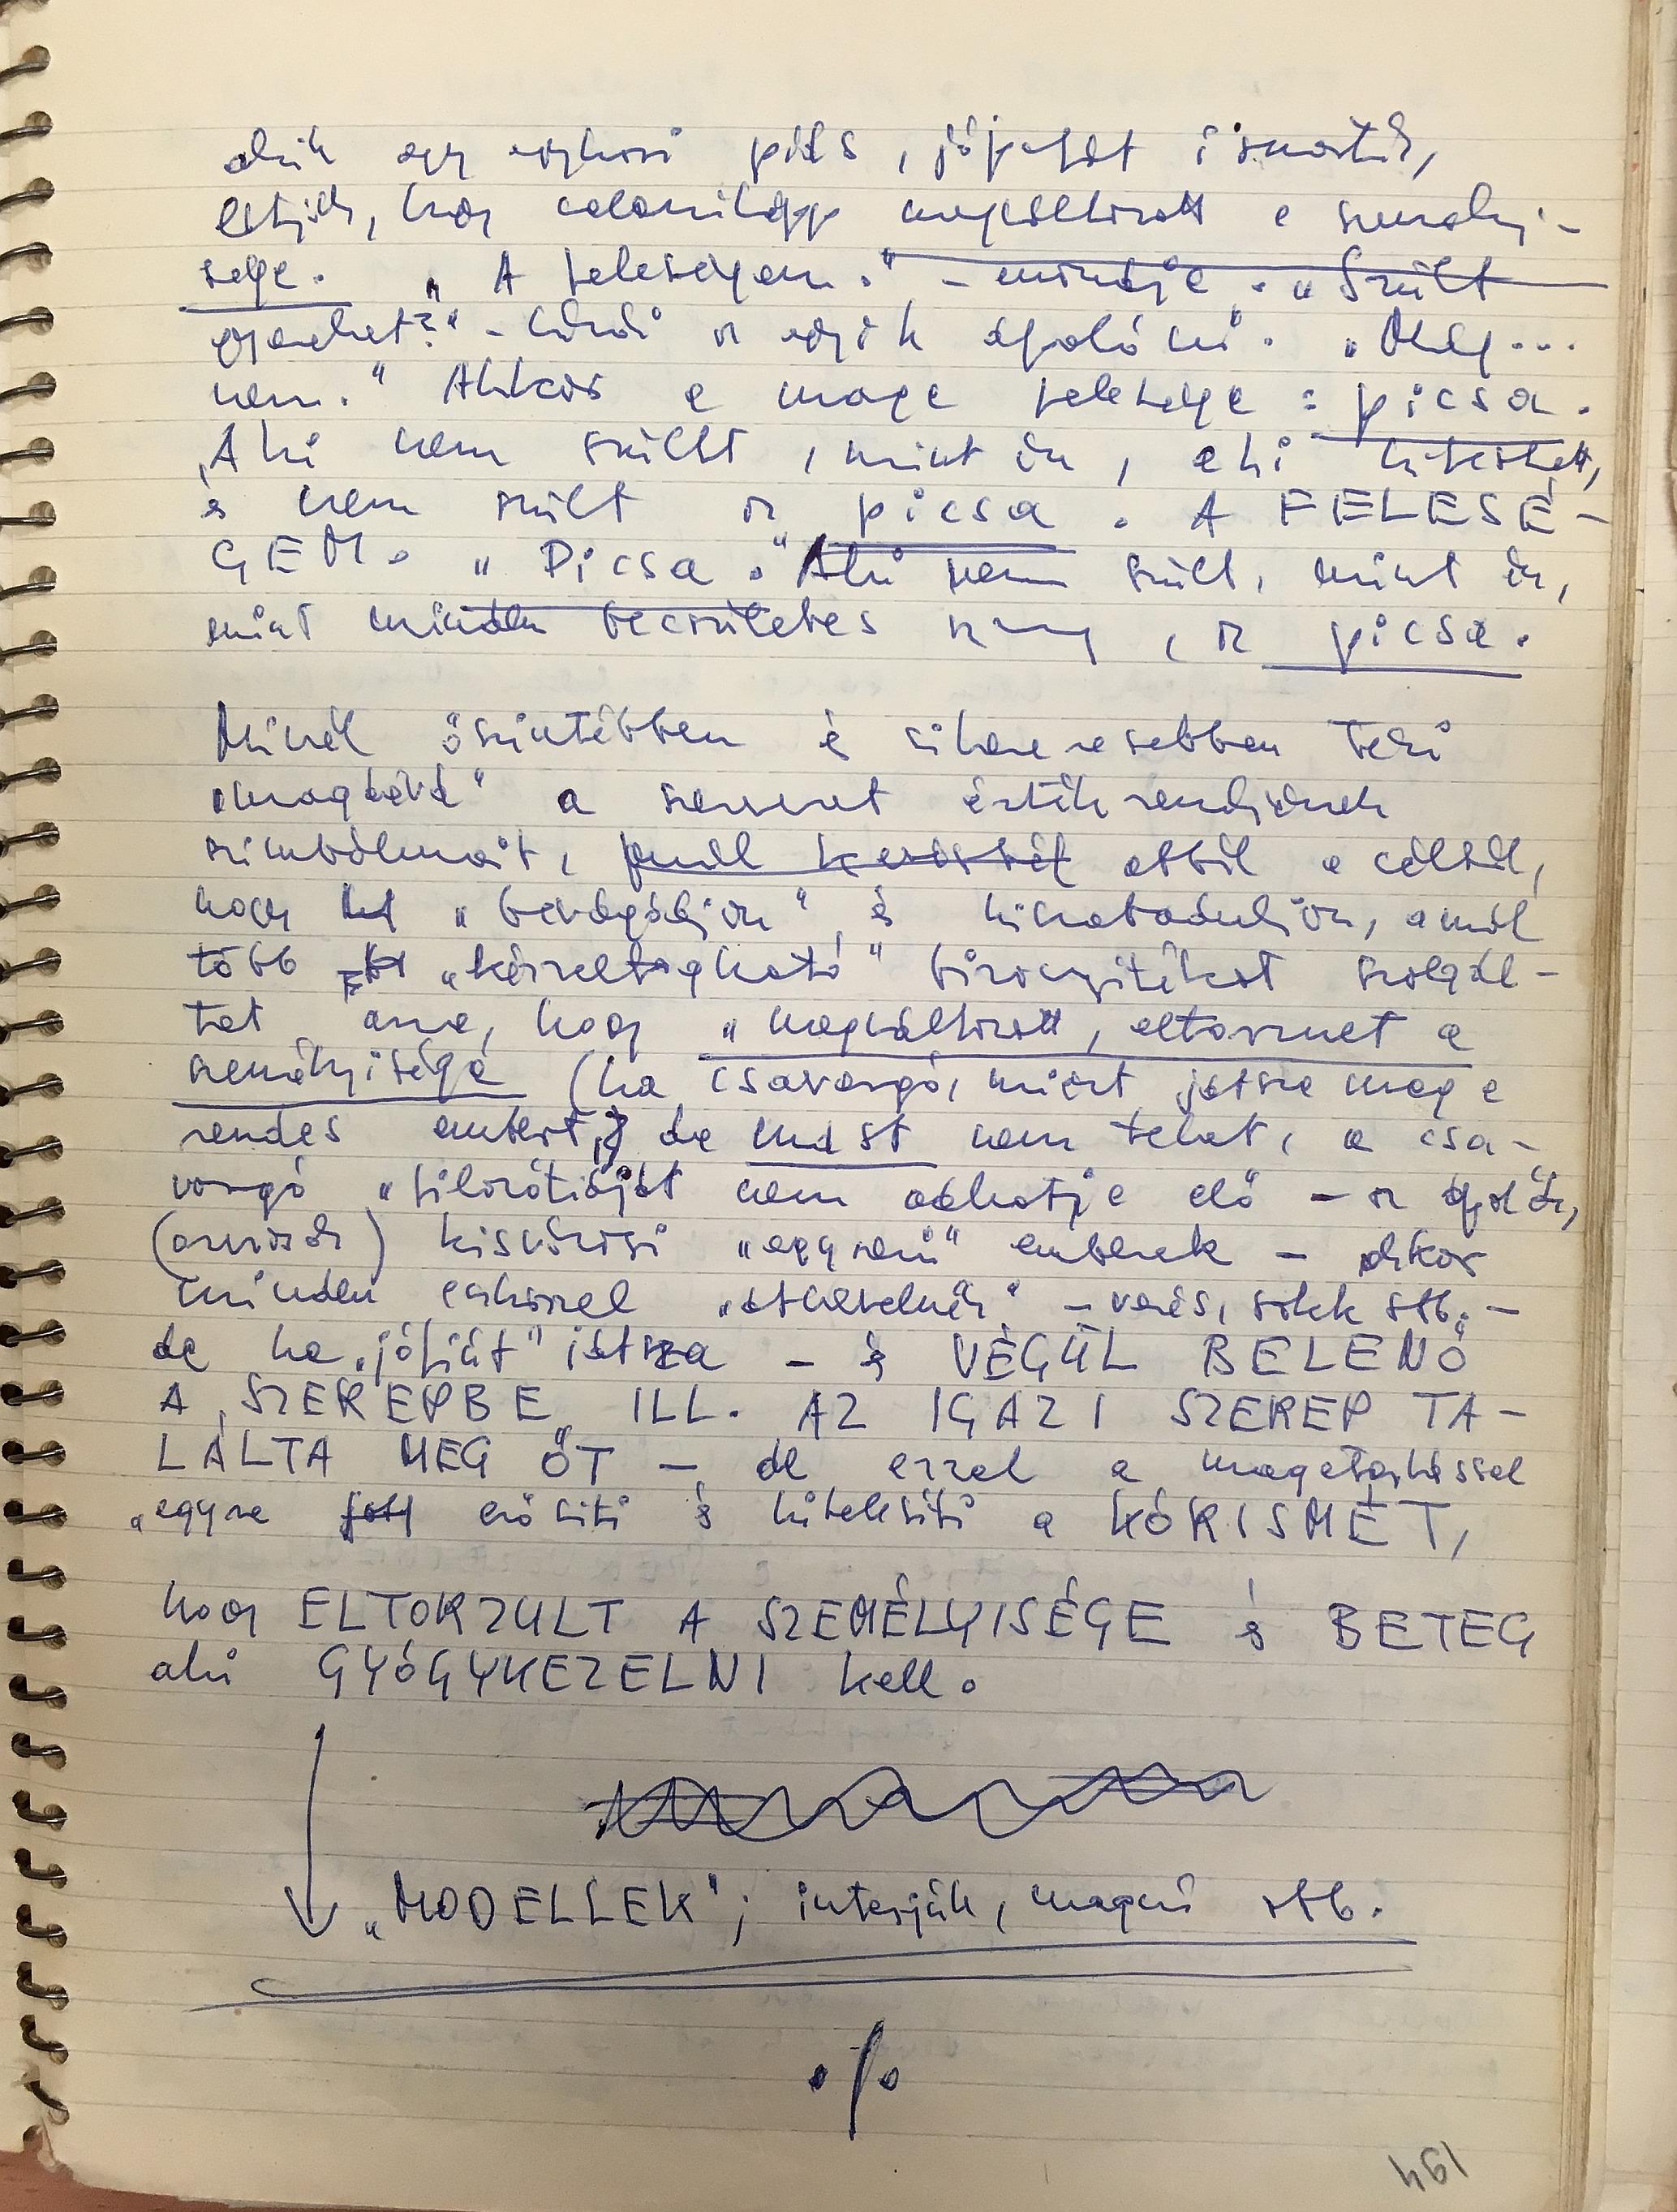 akik egy egykori , jópofát ismerték,
látják, hogy valamiképp megváltozott a személyi-
sége. „A feleségem." – mondja. „Szült
gyereket?" – kérdi az egyik ápolónő. „Még...
nem." Akkor a maga felesége: picsa.
Aki nem szült, mint én, aki
és nem szült az picsa. A FELESÉ-
GEM. „Picsa." Aki nem szült, mint én,
mint minden becsületes , az picsa.
Minél őszintébben és sikeresebben teszi
„magáévá" a szervezet értékrendjének
szimbólumait, annál kevésbé abból a célból,
hogy „bevágódjon" és kiszabaduljon, annál
több „kézzelfogható" bizonyítékot szolgál-
tat arra, hogy „megváltozott, eltorzult a
személyisége (ha csavargó, miért játssza meg a
rendes embert, de mást nem tehet, a csa-
vargó „filozófiáját nem adhatja elő – az ápolók,
(orvosok) kisvárosi „egyszerű" emberek – akkor
minden eszközzel „átnevelnék" – verés, sokk stb. –
de ha „jófiút" játssza – és VÉGÜL BELENŐ
A SZEREPBE, ILL. AZ IGAZI SZEREP TA-
LÁLTA MEG ŐT – de ezzel a magatartással
„egyre erősíti és hitelesíti a KÓRISMÉT,
hogy ELTORZULT A SZEMÉLYISÉGE és BETEG
akit GYÓGYKEZELNI kell.
„MODELLEK"; interjúk, magnó stb.
./.
194